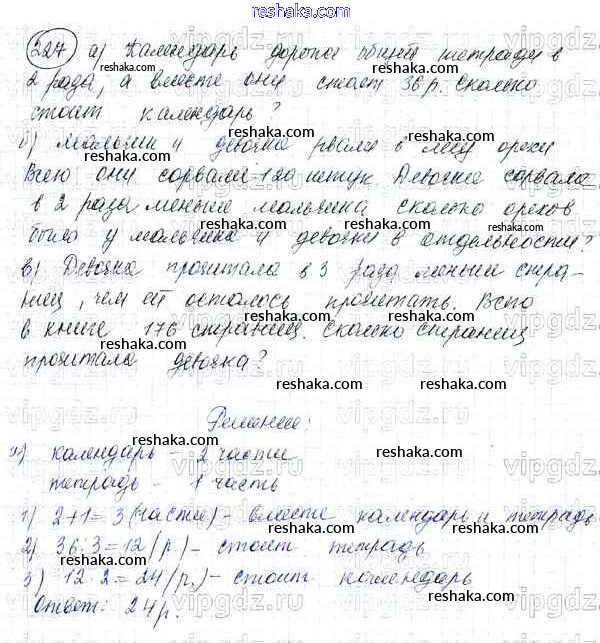 reshaka.com
227 а) Календарь дороже общей тетради в
2 раза, а вместе они стоят 36 р. Сколько
стоит календарь?
reshaka.com
reshaka.com
б) Мальчик и девочка рвали в лесу орехи
reshaka.com
Всего они сорвали 120 штук. Девочка сорвала
reshaka.com
в 2 раза меньше мальчика сколько орехов
было у мальчика и девочки в отдельности?
reshaka.com
в) Девочка прочитала в 3 раза меньше стра-
ниц, чем ей осталось прочитать. Всего
reshaka.com
в книге 176 страниц. Сколько страниц
прочитала девочка?
reshaka.com
reshaka.com
Решение:
reshaka.com
а) календарь - 2 части
тетрадь - 1 часть
reshaka.com
1) 2+1=3 (части) - вместе календарь и тетрадь
reshaka.com
2) 36:3=12 (р.) - стоит тетрадь
reshaka.com
3) 12·2=24 (р.) - стоит календарь
reshaka.com
Ответ: 24 р.
reshaka.com